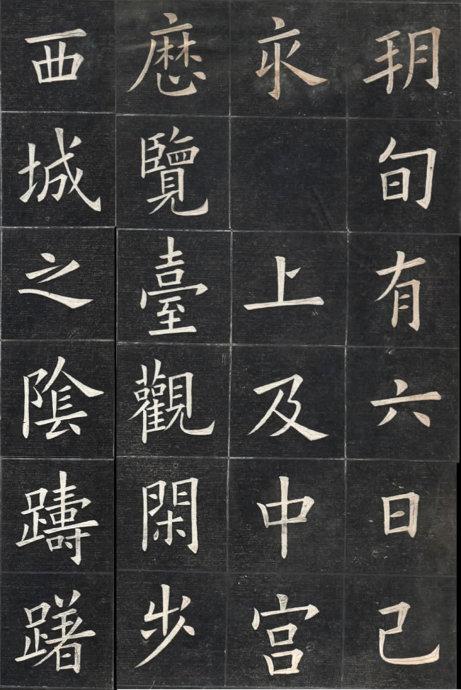 朔旬有六日己
亥　上及中宫
歷覽臺觀閑步
西城之陰躊躇